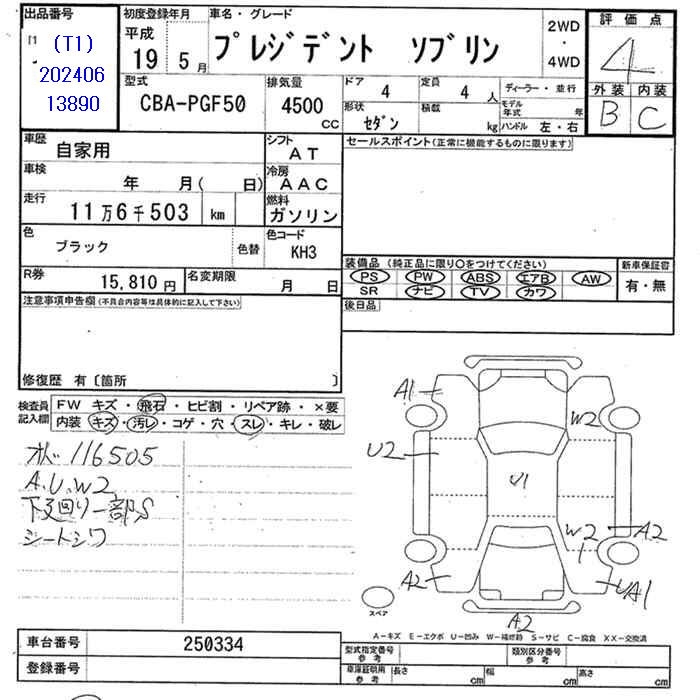 出品番号
(T1)
202406
13890
初度登録年月
平成
19 5月
車名・グレード
プレジデント ソブリン
2WD
・
4WD
評価点
4
外装 内装
B C
型式
CBA-PGF50
排気量
4500
cc
ドア 4
定員 4 人
形状 セダン
積載 kg
ディーラー・並行
モデル年式 年
ハンドル 左・右
車歴 自家用
シフト AT
車検 年 月( 日)
冷房 AAC
走行 11万6千503 km
燃料 ガソリン
色 ブラック
色替
色コード KH3
R券 15,810円
名変期限 月 日
セールスポイント(正常に機能するものに限ります)
装備品(純正品に限り○をつけてください)
PS PW ABS エアB AW
SR ナビ TV カワ
新車保証書
有・無
後日品
注意事項申告欄(不具合内容等は具体的に記入して下さい)
修復歴 有〔箇所 〕
検査員記入欄
FW キズ・飛石・ヒビ割・リペア跡・×要
内装 キズ・汚レ・コゲ・穴・スレ・キレ・破レ
オド 116505
A.U.W2
下廻り一部S
シートシワ
A1
W2
U2
U1
W2
A2
A2
UA1
A2
スペア
A-キズ E-エクボ U-凹み W-補修跡 S-サビ C-腐食 XX-交換済
車台番号 250334
登録番号
型式指定番号 参考
類別区分番号 参考
車庫証明用 参考
長さ cm
幅 cm
高さ cm